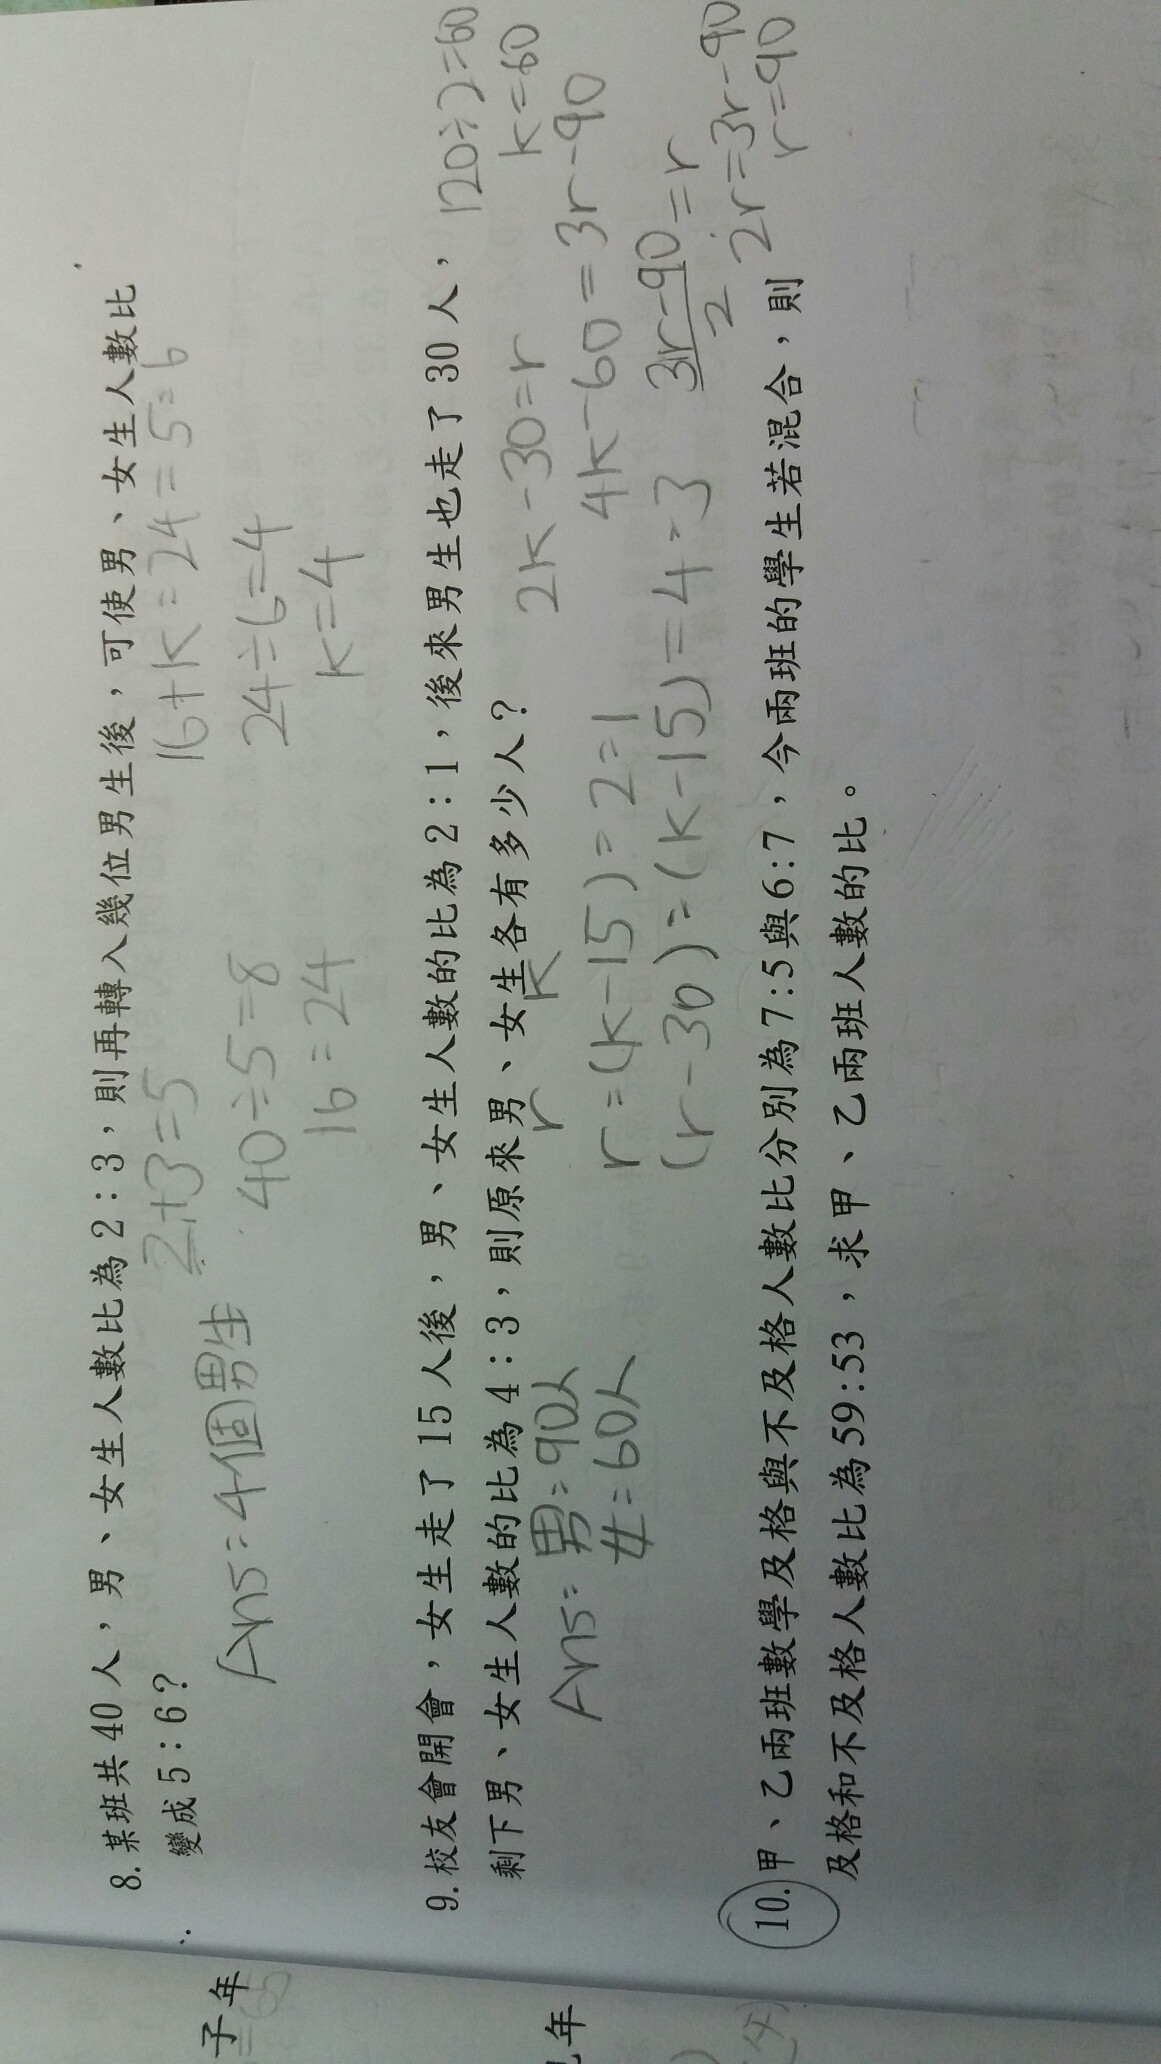 8. 某班共40人，男、女生人數比為2：3，則再轉入幾位男生後，可使男、女生人數比
變成5：6？
2+3=5
16+k:24=5:6
40÷5=8
24÷6=4
16:24
k=4
Ans:4個男生
9. 校友會開會，女生走了15人後，男、女生人數的比為2：1，後來男生也走了30人，
剩下男、女生人數的比為4：3，則原來男、女生各有多少人？
r k
120÷2=60
k=60
2k-30=r
4k-60=3r-90
r:(k-15)=2:1
(r-30):(k-15)=4:3
3r-90/2=r
2r=3r-90
r=90
Ans:男:90人
女:60人
10. 甲、乙兩班數學及格與不及格人數比分別為7:5與6:7，今兩班的學生若混合，則
及格和不及格人數比為59:53，求甲、乙兩班人數的比。
子年
年